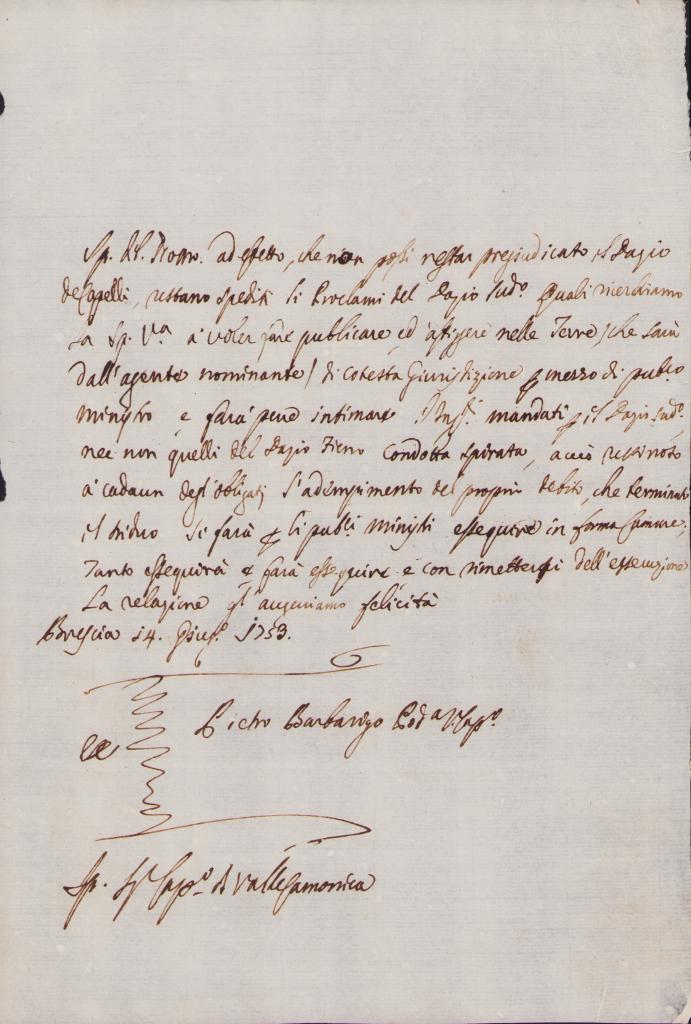 ad effetto, che non possi restar pregiudicato il Dazio
de Capelli, restano spediti li Proclami del Dazio sud.o Quali ricerchiamo
la Sp. V.a à voler fare publicare, ed affiggere nelle Terre / che sarà
dall'agente nominante / di cotesta Giurisdizione p mezzo di publico
ministro e farà pure intimare mandati p il Dazio sud.o
nec non quelli del Dazio Fieno Condotta spirata, acciò resti noto
à cadaun degl'obligati l'adempimento del proprio debito, che terminato
il triduo si farà p li publ.i ministri essequire in forma
Tanto essequirà e farà essequire e con rimettersi dell'essecuzione
La relazione gl'auguriamo felicità
Brescia 14. Giug.o 1753.
Pietro Barbarigo Pod.a V. Cap.o
Sp. Sig. Cap.o di Valle Camonica